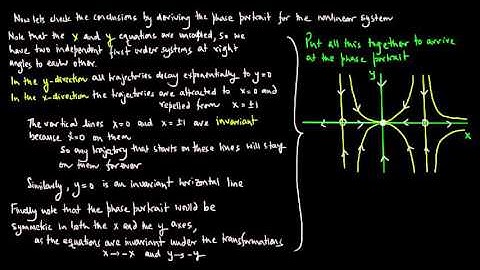 Now lets check the conclusions by deriving the phase portrait for the nonlinear system
Note that the x and y equations are uncoupled, so we
have two independent first order systems at right
angles to each other.
In the y-direction all trajectories decay exponentially to y=0
In the x-direction the trajectories are attracted to x=0 and
repelled from x=±1
The vertical lines x=0 and x=±1 are invariant
because ẋ=0 on them
So any trajectory that starts on these lines will stay
on them forever
Similarly, y=0 is an invariant horizontal line
Finally note that the phase portrait would be
symmetric in both the x and the y axes,
as the equations are invariant under the transformations
x→-x and y→-y
Put all this together to arrive
at the phase portrait
y
x